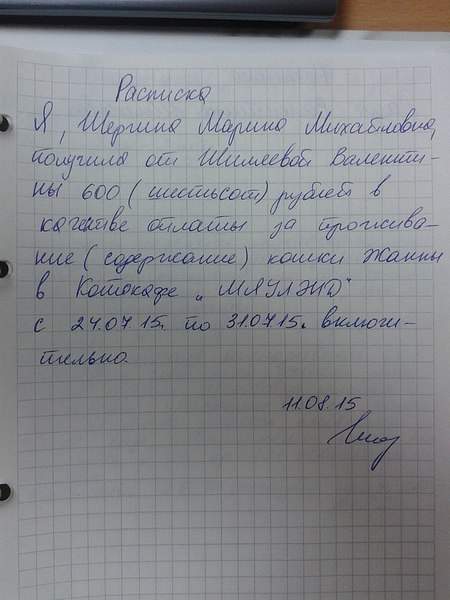 Расписка
Я, Шергина Марина Михайловна,
получила от Шиляевой Валенти-
ны 600 (шестьсот) рублей в
качестве оплаты за прожива-
ние (содержание) кошки Жанны
в Котокафе „МЯУЛЭНД"
с 24.07.15. по 31.07.15. включи-
тельно.
11.08.15